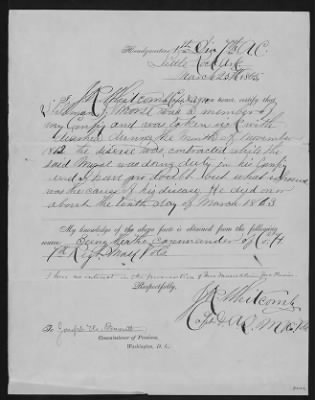 Headquarters 1st Div 7th A.C.
Little Rock Ark
March 25th 1865
I, J R Whitcomb Capt & AQM now certify that
was a member of
my Compy and was taken sick with
during the month of November
1862 the disease was contracted while the
said Morse was doing duty in his Compy
and I have no doubt but what
was the cause of his disease He died on or
about the tenth day of March 1863
My knowledge of the above facts is obtained from the following
name: Being the Commander of Co H
Regt Mass Vols
I have no interest in the prosecution of
Respectfully,
J R Whitcomb
Capt & A.Q.M.
To Joseph H. Barrett
Commissioner of Pensions,
Washington, D. C.